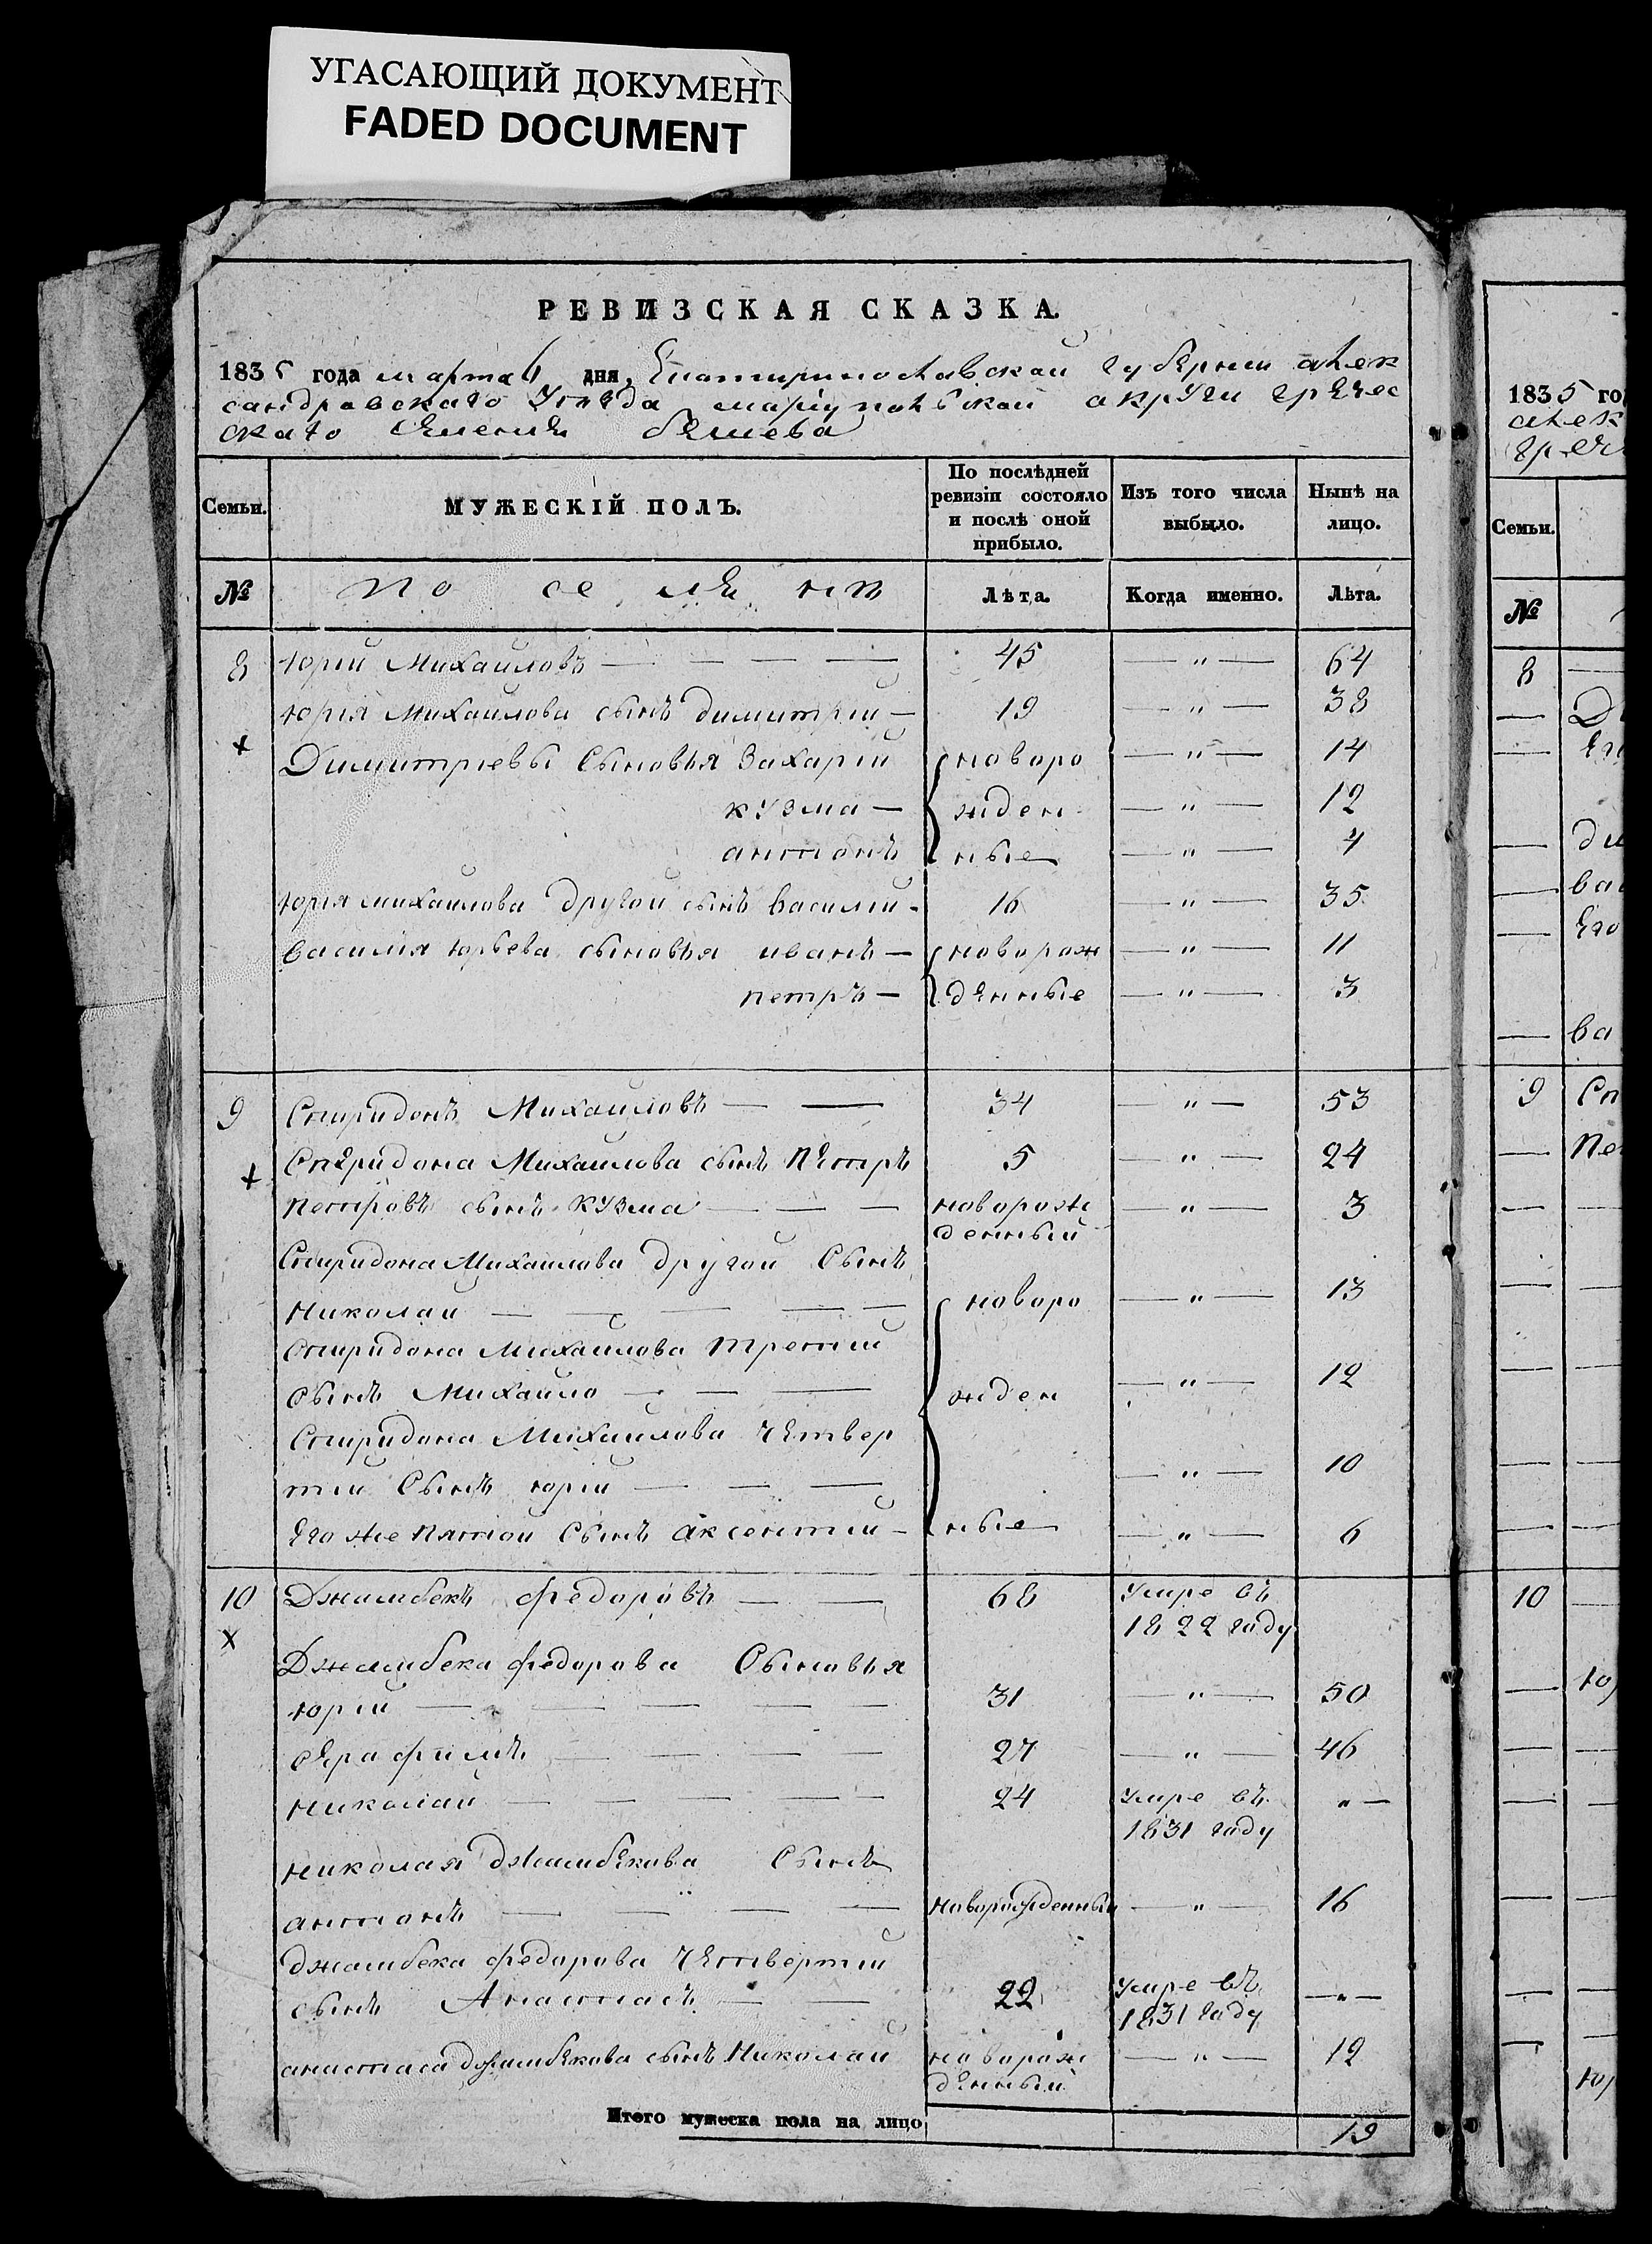 УГАСАЮЩИЙ ДОКУМЕНТ
FADED DOCUMENT
РЕВИЗСКАЯ СКАЗКА.
1835 года марта 6 дня, Екатиринославской губернии алек
сандравскаго Уезда мариупольской акруги гречес
скаго селения бешева
Семьи. МУЖЕСКІЙ ПОЛЪ. По послѣдней ревизіи состояло и послѣ оной прибыло. Изъ того числа выбыло. Нынѣ на лицо.
№ по се ля нъ Лѣта. Когда именно. Лѣта.
8 Юрий Михаиловъ — — — — 45 — " — 64
Юрия Михаилова сынъ димитрий — 19 — " — 38
Димитриевы Сыновья Захарий новоро — " — 14
кузма — жден — " — 12
антонъ ные — " — 4
Юрия михаилова другой сынъ василий - 16 — " — 35
василия юрьева сыновья иванъ — новорож — " — 11
петръ — денные — " — 3
9 Спиридонъ Михаиловъ — — 34 — " — 53
Спиридона Михаилова сынъ петръ 5 — " — 24
петровъ сынъ кузма — — — новорож — " — 3
денный
Спиридона Михаилова другой Сынъ
николай — — — — — новоро — " — 13
спиридона михаилова третий
сынъ Михаило — — — жден — " — 12
Спиридона Михаилова четвер
тий Сынъ юрий — — — — " — 10
его же пятой Сынъ аксентий — ные — " — 6
10 Джамбекъ федоровъ — — 68 Умре въ
1822 гаду
Джамбека федорова Сыновья
юрий — — — — — 31 — " — 50
серафимъ — — — — 27 — " — 46
николай — — — — — 24 Умре въ " —
1831 гаду
николая джамбекова Сынъ
антонъ — — — — новорожденный — " — 16
джамбека федорова четвертий
сынъ Анастасъ — — 22 Умре въ — " —
1831 гаду
анастаса джамбекова сынъ Николай новорож — " — 12
денный
Итого мужеска пола на лицо 19
1835 го
алек
греч
Семьи.
№
8
Ди
Его
ди
вас
Его
ва
9 Сп
пе
10
юр
юр